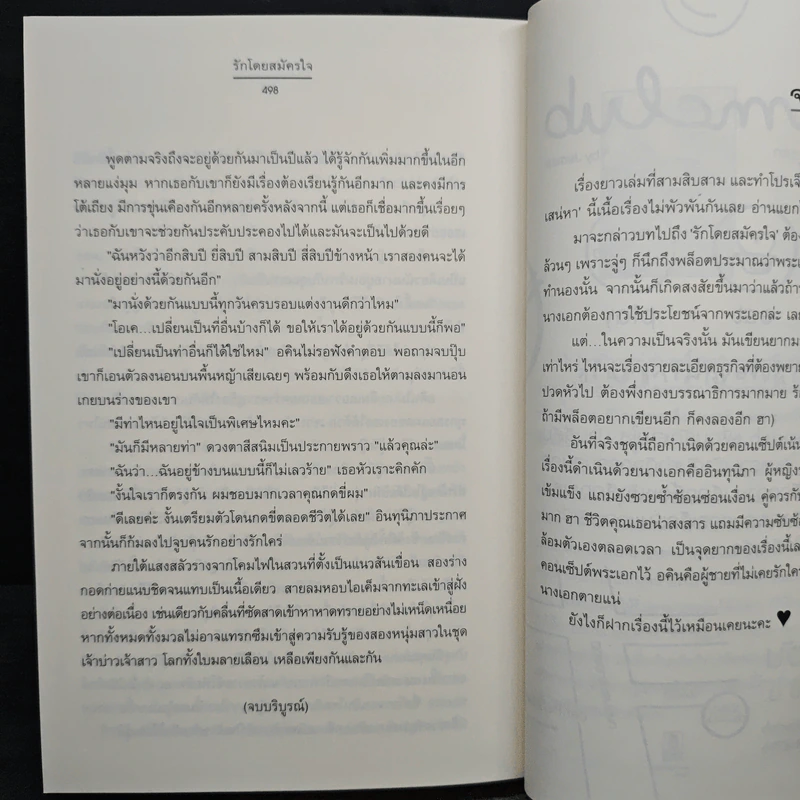 รักโดยสมัครใจ
498
พูดตามจริงถึงจะอยู่ด้วยกันมาเป็นปีแล้ว ได้รู้จักกันเพิ่มมากขึ้นในอีก
หลายแง่มุม หากเธอกับเขาก็ยังมีเรื่องต้องเรียนรู้กันอีกมาก และคงมีการ
โต้เถียง มีการขุ่นเคืองกันอีกหลายครั้งหลังจากนี้ แต่เธอก็เชื่อมากขึ้นเรื่อยๆ
ว่าเธอกับเขาจะช่วยกันประคับประคองไปได้และมันจะเป็นไปด้วยดี
"ฉันหวังว่าอีกสิบปี ยี่สิบปี สามสิบปี สี่สิบปีข้างหน้า เราสองคนจะได้
มานั่งอยู่อย่างนี้ด้วยกันอีก"
"มานั่งด้วยกันแบบนี้ทุกวันครบรอบแต่งงานดีกว่าไหม"
"โอเค...เปลี่ยนเป็นที่อื่นบ้างก็ได้ ขอให้เราได้อยู่ด้วยกันแบบนี้ก็พอ"
"เปลี่ยนเป็นท่าอื่นก็ได้ใช่ไหม" อคินไม่รอฟังคำตอบ พอถามจบปุ๊บ
เขาก็เอนตัวลงนอนบนพื้นหญ้าเสียเฉยๆ พร้อมกับดึงเธอให้ตามลงมานอน
เกยบนร่างของเขา
"มีท่าไหนอยู่ในใจเป็นพิเศษไหมคะ"
"มันก็มีหลายท่า" ดวงตาสีสนิมเป็นประกายพราว "แล้วคุณล่ะ"
"ฉันว่า...ฉันอยู่ข้างบนแบบนี้ก็ไม่เลวร้าย" เธอหัวเราะคิกคัก
"งั้นใจเราก็ตรงกัน ผมชอบมากเวลาคุณกดขี่ผม"
"ดีเลยค่ะ งั้นเตรียมตัวโดนกดขี่ตลอดชีวิตได้เลย" อินทุนิภาประกาศ
จากนั้นก็ก้มลงไปจูบคนรักอย่างรักใคร่
ภายใต้แสงสลัวรางจากโคมไฟในสวนที่ตั้งเป็นแนวสันเขื่อน สองร่าง
กอดก่ายแนบชิดจนแทบเป็นเนื้อเดียว สายลมหอบไอเค็มจากทะเลเข้าสู่ฝั่ง
อย่างต่อเนื่อง เช่นเดียวกับคลื่นที่ซัดสาดเข้าหาหาดทรายอย่างไม่เหน็ดเหนื่อย
หากทั้งหมดทั้งมวลไม่อาจแทรกซึมเข้าสู่ความรับรู้ของสองหนุ่มสาวในชุด
เจ้าบ่าวเจ้าสาว โลกทั้งใบมลายเลือน เหลือเพียงกันและกัน
(จบบริบูรณ์)
เรื่องยาวเล่มที่สามสิบสาม และทำโปรเจ็
เสน่หา' นี้เนื้อเรื่องไม่พัวพันกันเลย อ่านแยก
มาจะกล่าวบทไปถึง 'รักโดยสมัครใจ' ต้อง
ล้วนๆ เพราะจู่ๆ ก็นึกถึงพล็อตประมาณว่าพระเ
ทำนองนั้น จากนั้นก็เกิดสงสัยขึ้นมาว่าแล้วถ้า
นางเอกต้องการใช้ประโยชน์จากพระเอกล่ะ เลย
แต่...ในความเป็นจริงนั้น มันเขียนยากม
เท่าไหร่ ไหนจะเรื่องรายละเอียดธุรกิจที่ต้องพยา
ปวดหัวไป ต้องพึ่งกองบรรณาธิการมากมาย
ถ้ามีพล็อตอยากเขียนอีก ก็คงลองอีก ฮา)
อันที่จริงชุดนี้ถือกำเนิดด้วยคอนเซ็ปต์เน้น
เรื่องนี้ดำเนินด้วยนางเอกคืออินทุนิภา ผู้หญิง
เข้มแข็ง แถมยังซวยซ้ำซ้อนซ่อนเงื่อน คู่ควรกับ
มาก ฮา ชีวิตคุณเธอน่าสงสาร แถมมีความซับซ้อ
ล้อมตัวเองตลอดเวลา เป็นจุดยากของเรื่องนี้เล
คอนเซ็ปต์พระเอกไว้ อคินคือผู้ชายที่ไม่เคยรักใคร
นางเอกตายแน่
ยังไงก็ฝากเรื่องนี้ไว้เหมือนเคยนะคะ ♥